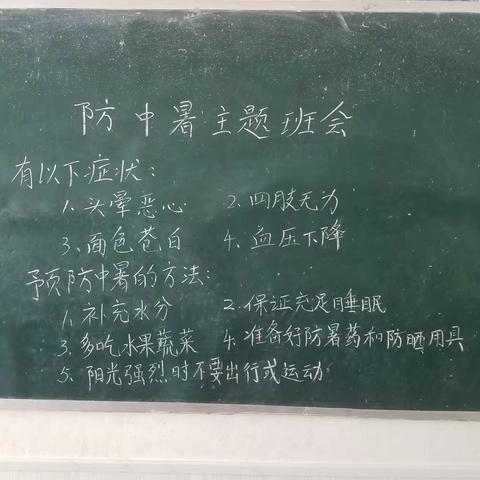 防中暑主题班会
有以下症状：
1、头晕恶心 2、四肢无力
3、面色苍白 4、血压下降
予页防中暑的方法：
1、补充水分 2、保证充足睡眠
3、多吃水果蔬菜 4、准备好防暑药和防晒用具
5、阳光强烈时不要出行或运动